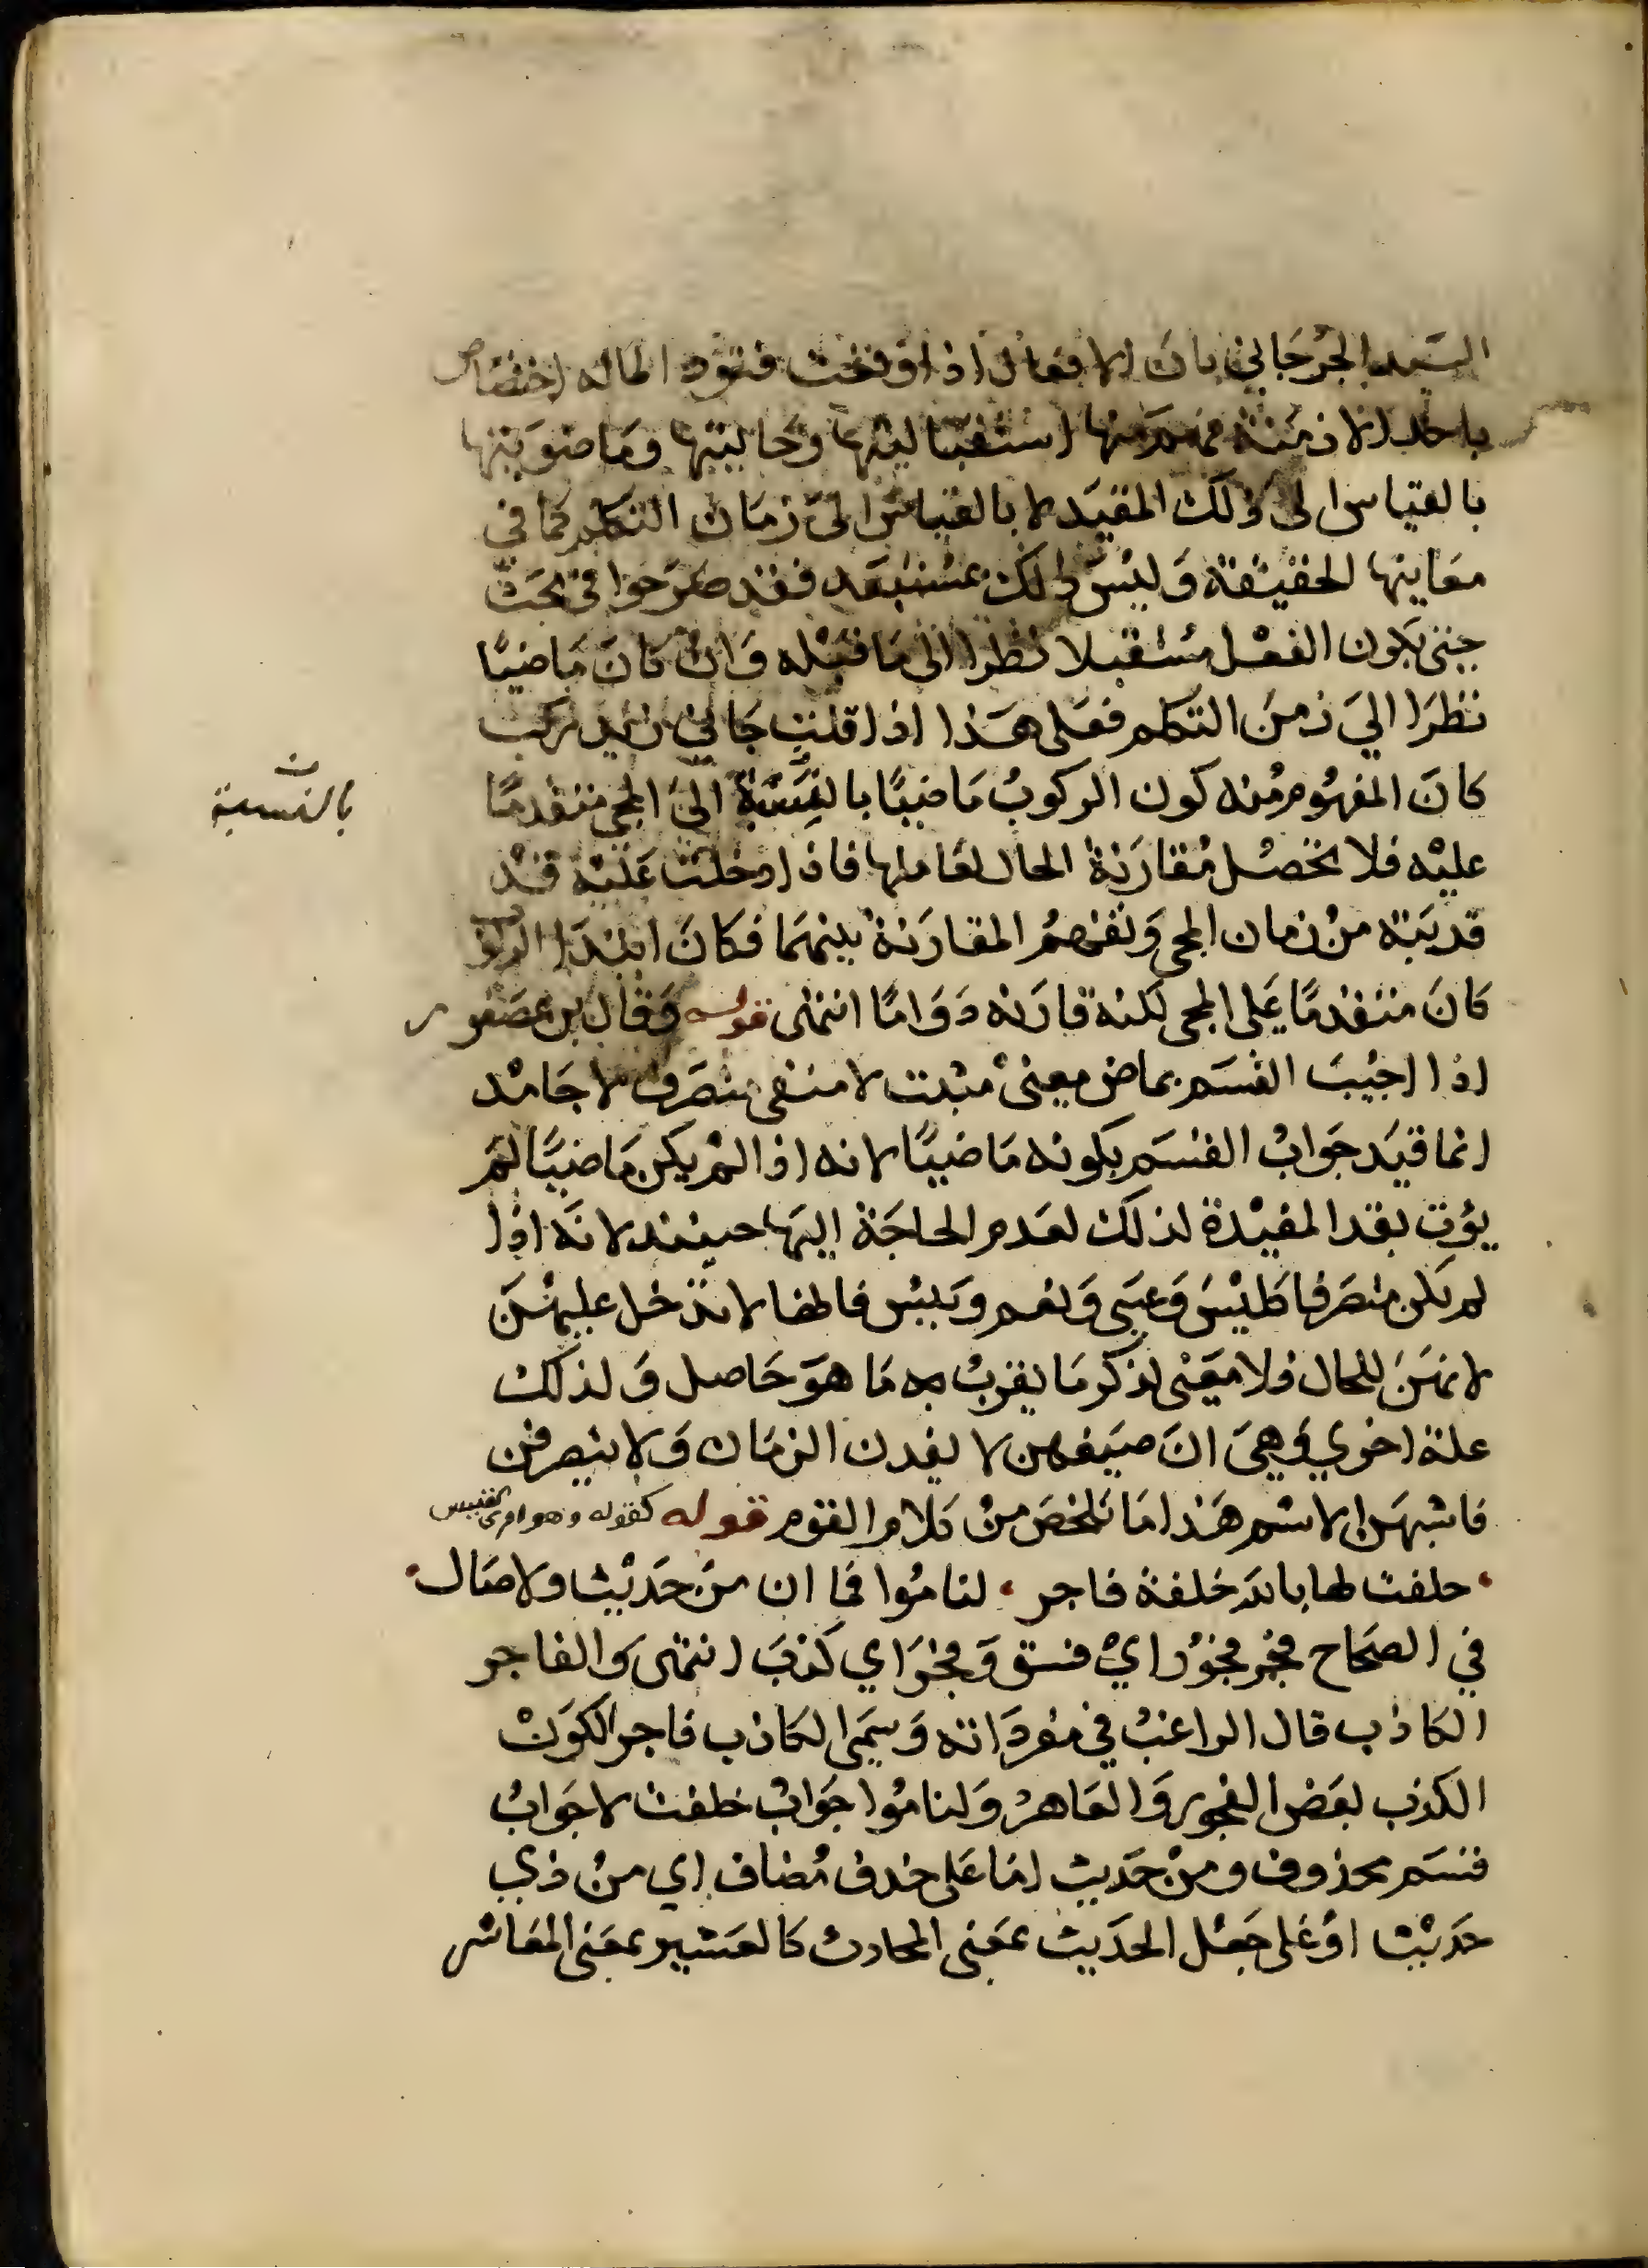 السيد الجرجاني بان الافعال اذا وقعت قيودا لماله اختصاص
باحد الازمنة فهم منها استقباليتها وحاليتها وماضويتها
بالقياس الى ذلك المقيد لا بالقياس الى زمان التكلم كما في
معاينها الحقيقة وليس ذلك بمستبعد فقد صرحوا في بحث
حتى بكون الفعل مستقبلا نظرا الى ما قبله وان كان ماضيا
نظرا الي زمن التكلم فعلى هذا اذا قلت جاني زيد ركب
كان المفهوم منه كون الركوب ماضيا بالنسبة الى المجي متقدما
بالنسبة
عليه فلا تحصل مقارنة الحال لعاملها فاذا دخلت عليه قد
قربته من زمان المجي وتفهم المقارنة بينهما فكان ابتدا الركوب
كان متقدما على المجى لكنه قارنه دواما انتهى قوله وقال بن عصفور
اذا اجيب القسم بماض معنى مثبت لا منفى متصرف لا جامد
انما قيد جواب القسم بكونه ماضيا لانه اذا لم يكن ماضيا لم
يؤت بقد المفيدة لذلك لعدم الحاجة اليها حينئذ لانه اذا
لم يكن متصرفا كليس وعسى ونعم وبيس فانها لا تدخل عليهن
لانهن للحال فلا معنى لذكر ما يقرب به ما هو حاصل ولذلك
علة اخري وهى ان صيغهن لا يفدن الزمان ولا يتصرفن
فاشبهن الاسم هذا ما تلخص من كلام القوم قوله كقوله وهو امرئ القيس
حلفت لها بالله حلفة فاجر • لناموا فما ان من حديث ولا صال •
في الصحاح فجر فجورا اي فسق وفجر اي كذب انتهى والفاجر
الكاذب قال الراغب في مفرداته وسمى الكاذب فاجر الكون
الكذب بعض الفجور والعاهر ولناموا جواب حلفت لا جواب
قسم محذوف ومن حديث اما على حذف مضاف اي من ذي
حديث او على جعل الحديث بمعنى المحادث كالعشير بمعنى المعاشر